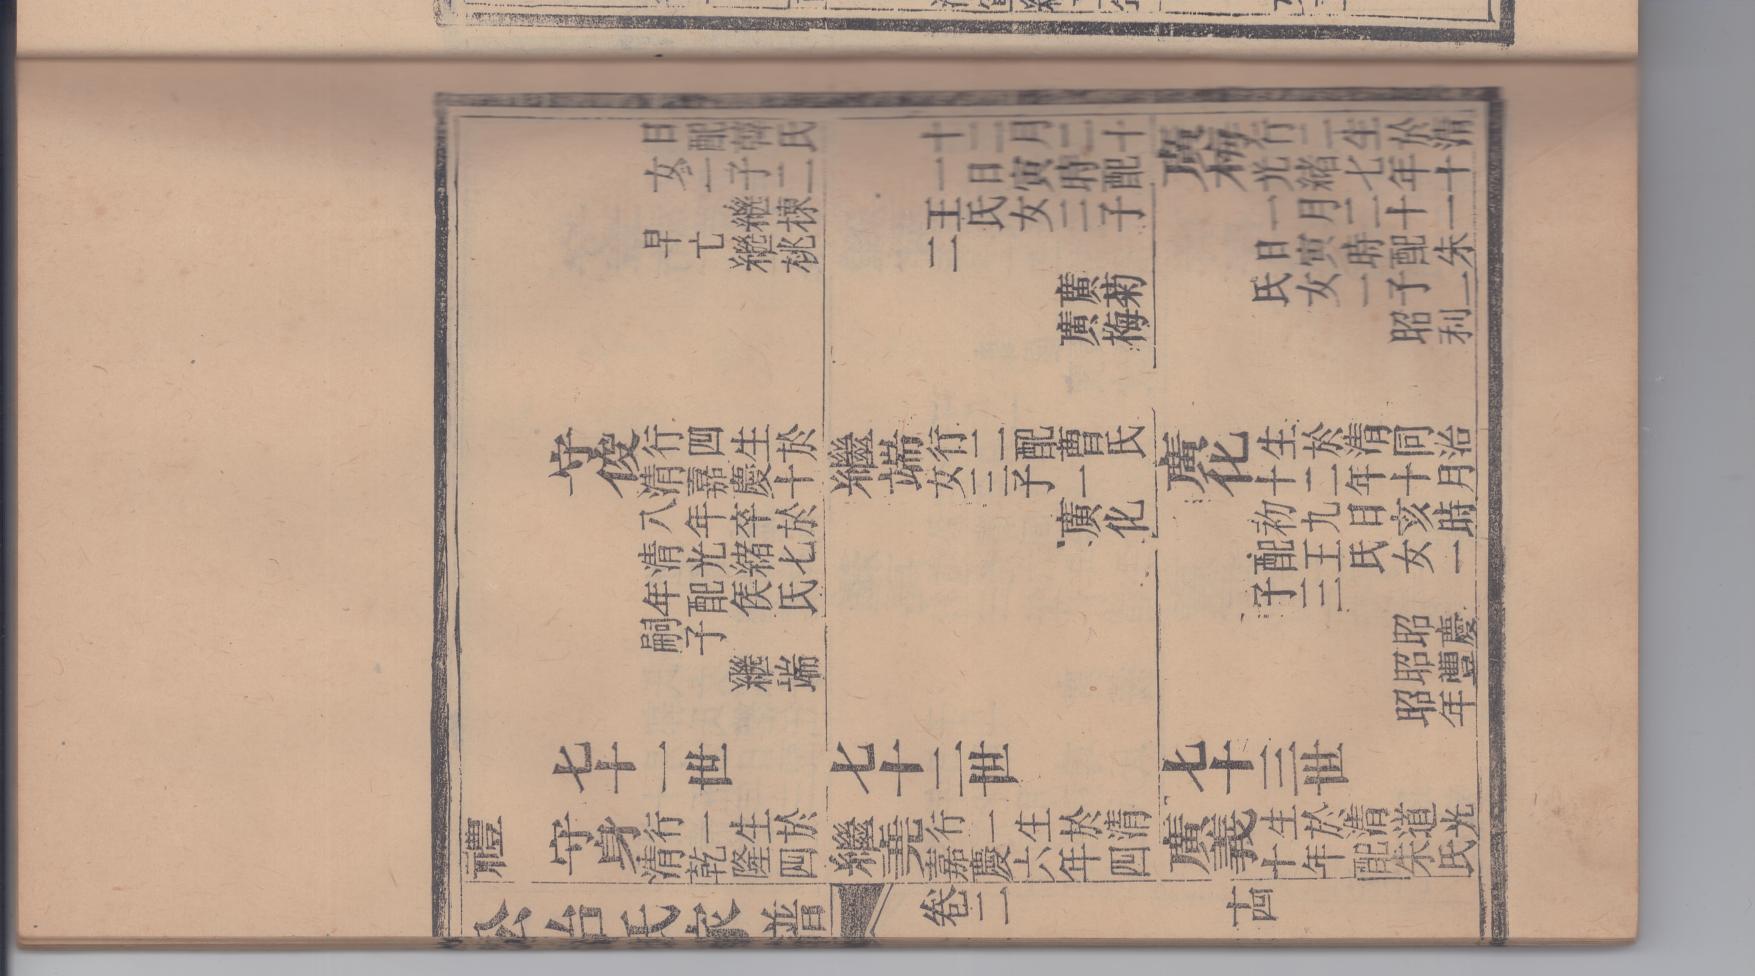 日配韓氏
女二子二
繼棟
早亡繼桃
守俊
行四生於
清嘉慶十
八年卒於
清光緒七
年配侯氏
嗣子
繼端
七十一世
禮
守身
行一生於
清乾隆四
十二月二十
一日寅時配
王氏女二子
二
廣菊
廣梅
繼端
行二配曹氏
女二子一
廣化
七十二世
繼堯
行一生於清
嘉慶六年四
廣梅
行二生於清
光緒七年十
一月二十一
日寅時配朱
氏女一子二
昭利
廣化
生於清同治
十二年十月
初九日亥時
配王氏女一
子二
昭慶
昭豐
昭年
七十三世
廣義
生於清道光
十年配朱氏
公冶氏家譜 卷二 廿四